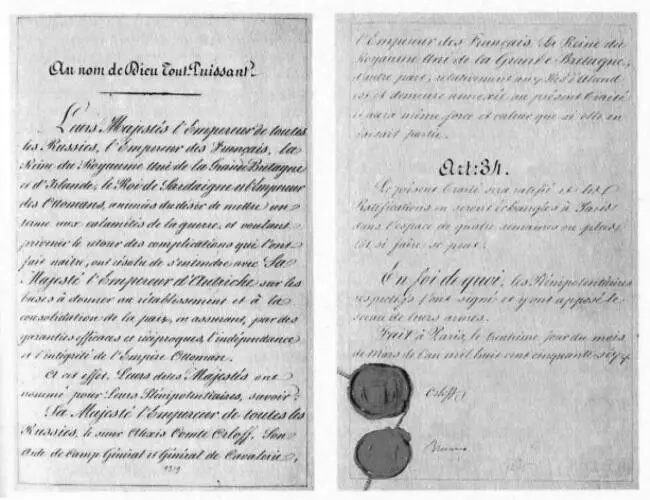 Au nom de Dieu Tout-Puissant.
Leurs Majestés l'Empereur de toutes
les Russies, l'Empereur des Français, la
Reine du Royaume Uni de la Grande Bretagne
et d'Irlande, le Roi de Sardaigne et l'Empereur
des Ottomans, animées du désir de mettre un
terme aux calamités de la guerre, et voulant
prévenir le retour des complications qui l'ont
fait naître, ont résolu de s'entendre avec Sa
Majesté l'Empereur d'Autriche sur les
bases à donner au rétablissement et à la
consolidation de la paix, en assurant, par des
garanties efficaces et réciproques, l'indépendance
et l'intégrité de l'Empire Ottoman.
A cet effet, Leurs dites Majestés ont
nommé pour Leurs Plénipotentiaires, savoir:
Sa Majesté l'Empereur de toutes les
Russies, le sieur Alexis Comte Orloff, Son
Aide de Camp Général et Général de Cavalerie,
l'Empereur des Français, la Reine du
Royaume Uni de la Grande Bretagne,
d'autre part, relativement aux Iles d'Aland
est et demeure annexée au présent Traité
et aura même force et valeur que si elle en
faisait partie.
Art: 34.
Le présent Traité sera ratifié et les
Ratifications en seront échangées à Paris
dans l'espace de quatre semaines ou plus
tôt, si faire se peut.
En foi de quoi, les Plénipotentiaires
respectifs l'ont signé et y ont apposé le
sceau de leurs armes.
Fait à Paris, le trentième jour du mois
de Mars de l'an mil huit cent cinquante six
Orloff